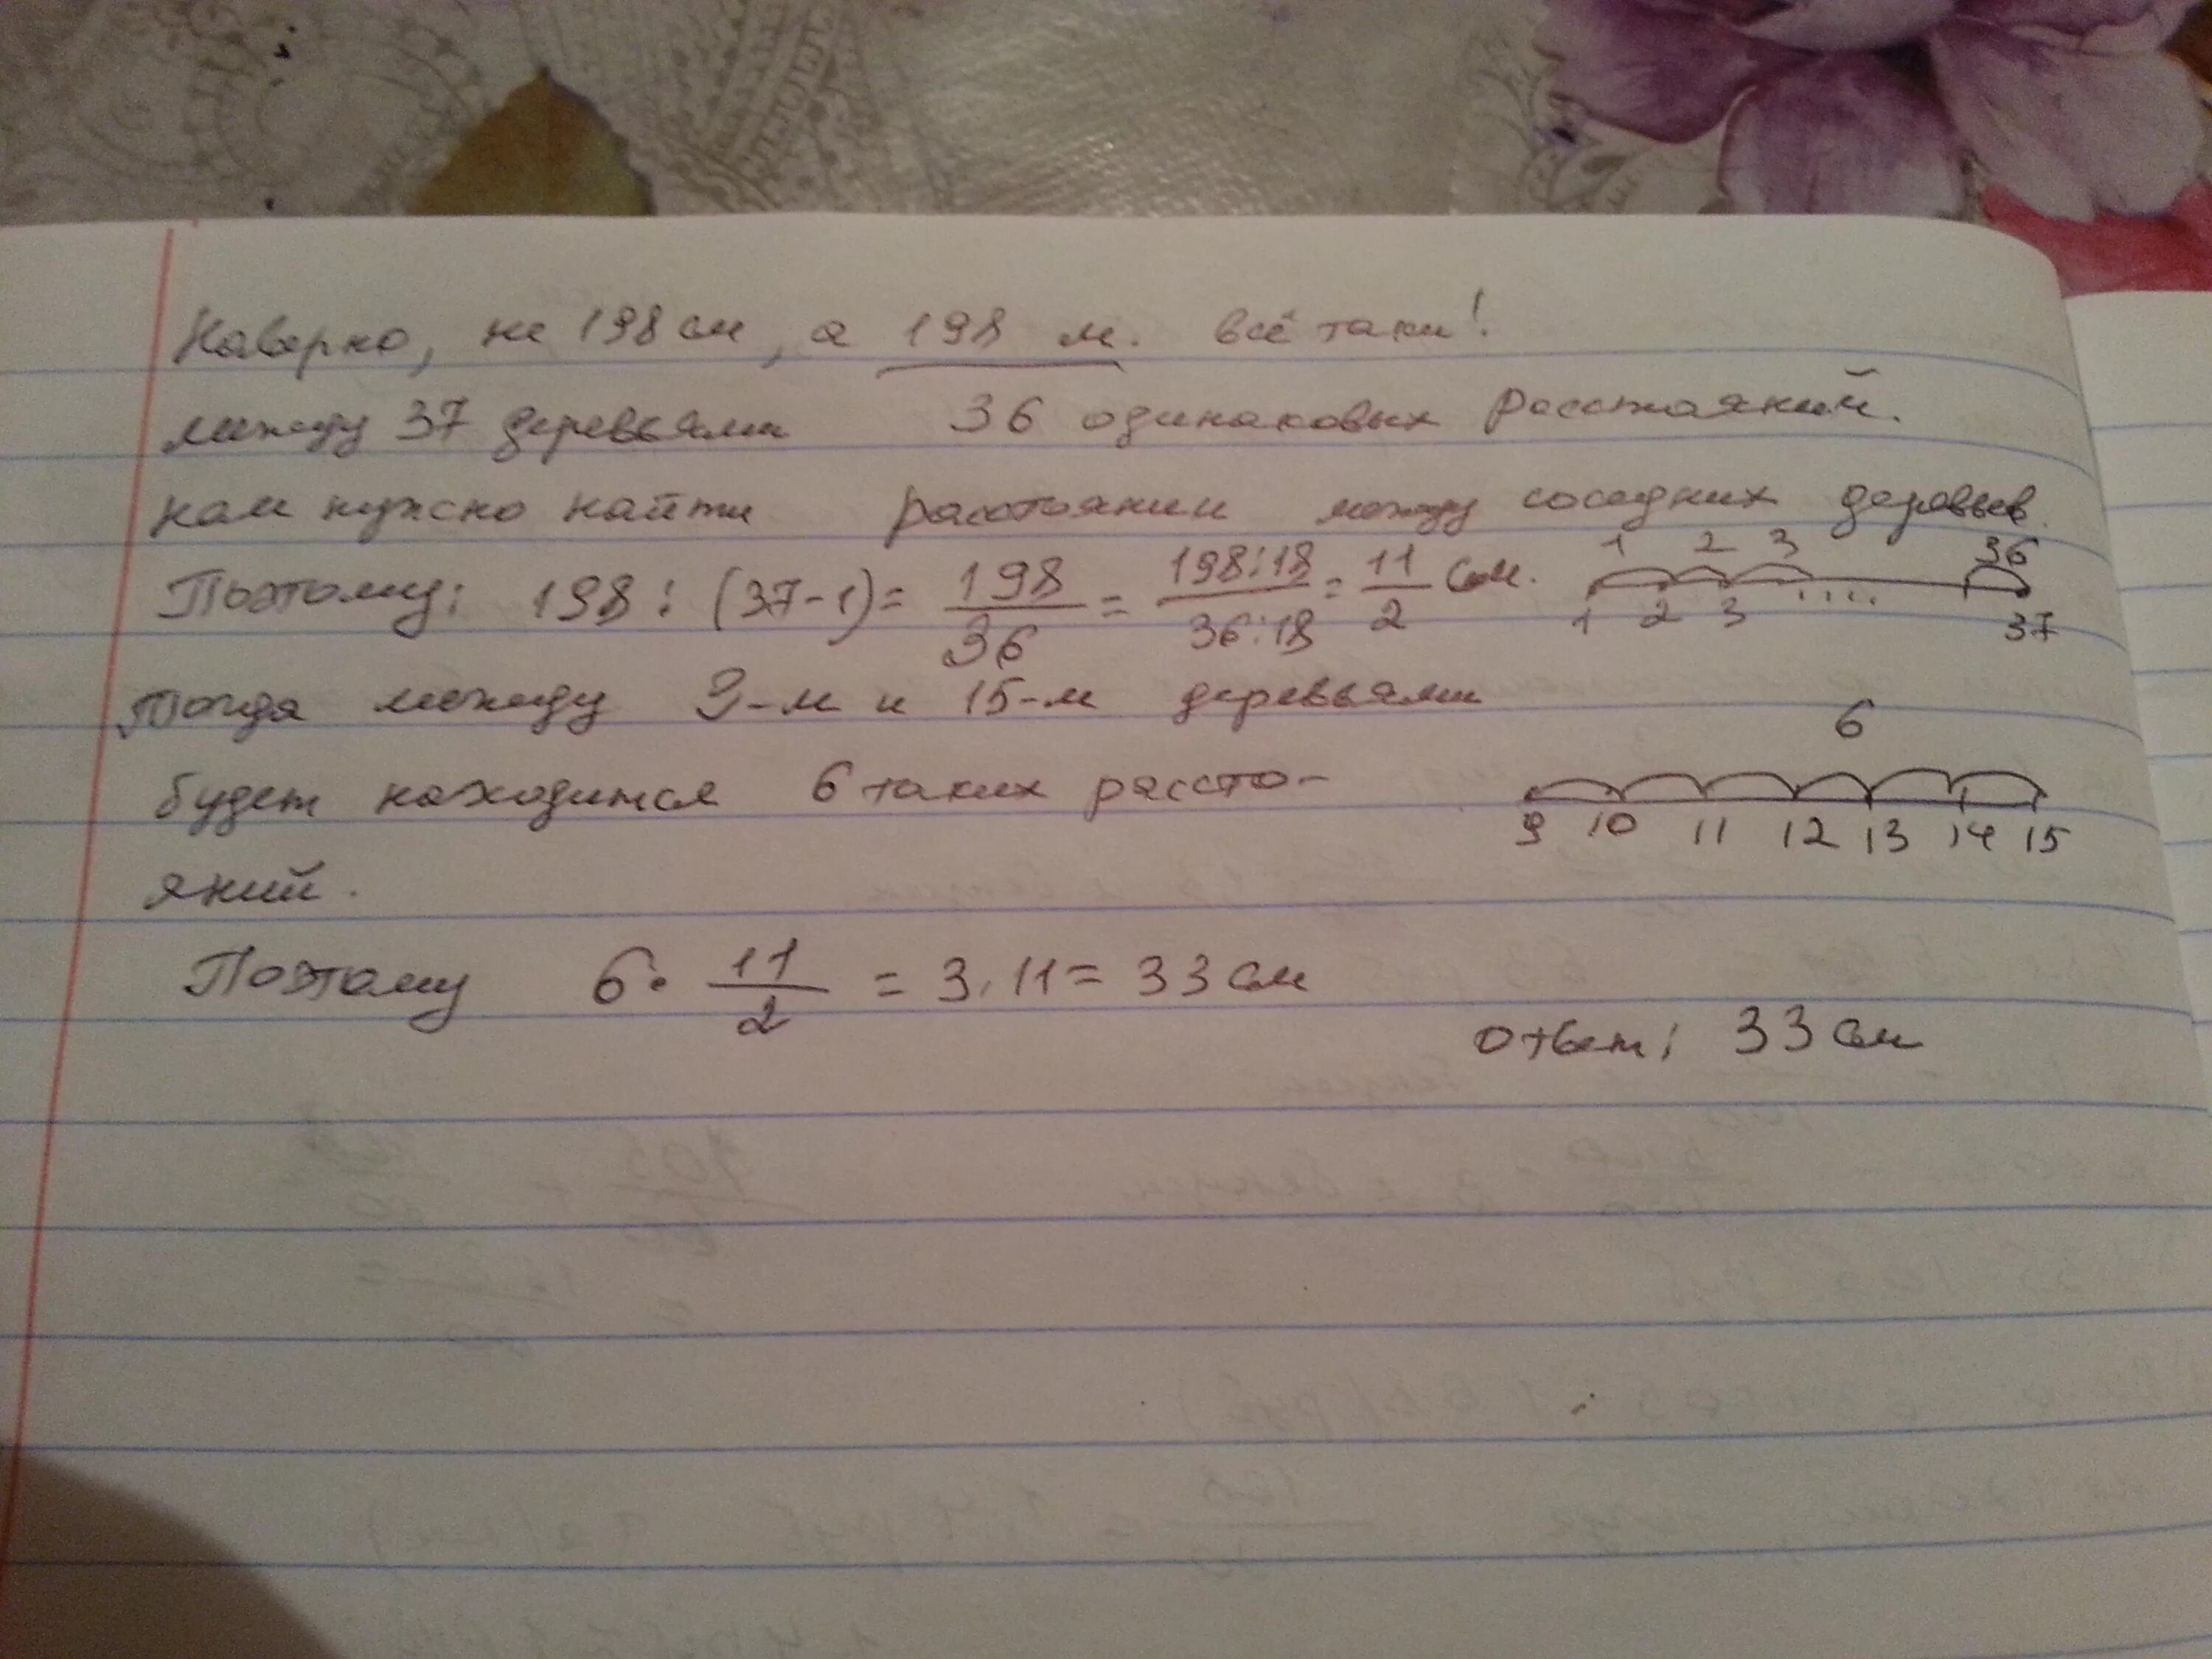 Наверно, не 198 см, а 198 м. всё таки!
между 37 деревьями 36 одинаковых расстояний.
нам нужно найти расстоянии между соседних деревьев.
Поэтому: 198 : (37-1) = 198/36 = 198:18/36:18 = 11/2 см.
1 2 3 36
1 2 3 .... 37
Тогда между 9-м и 15-м деревьями
будет находится 6 таких рассто-
яний.
6
9 10 11 12 13 14 15
Поэтому 6 · 11/2 = 3 · 11 = 33 см
Ответ: 33 см